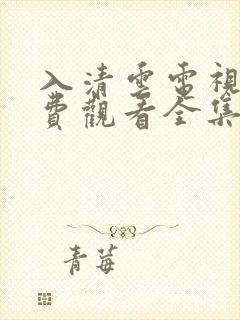 入清雲電視
費觀看全集
青莓